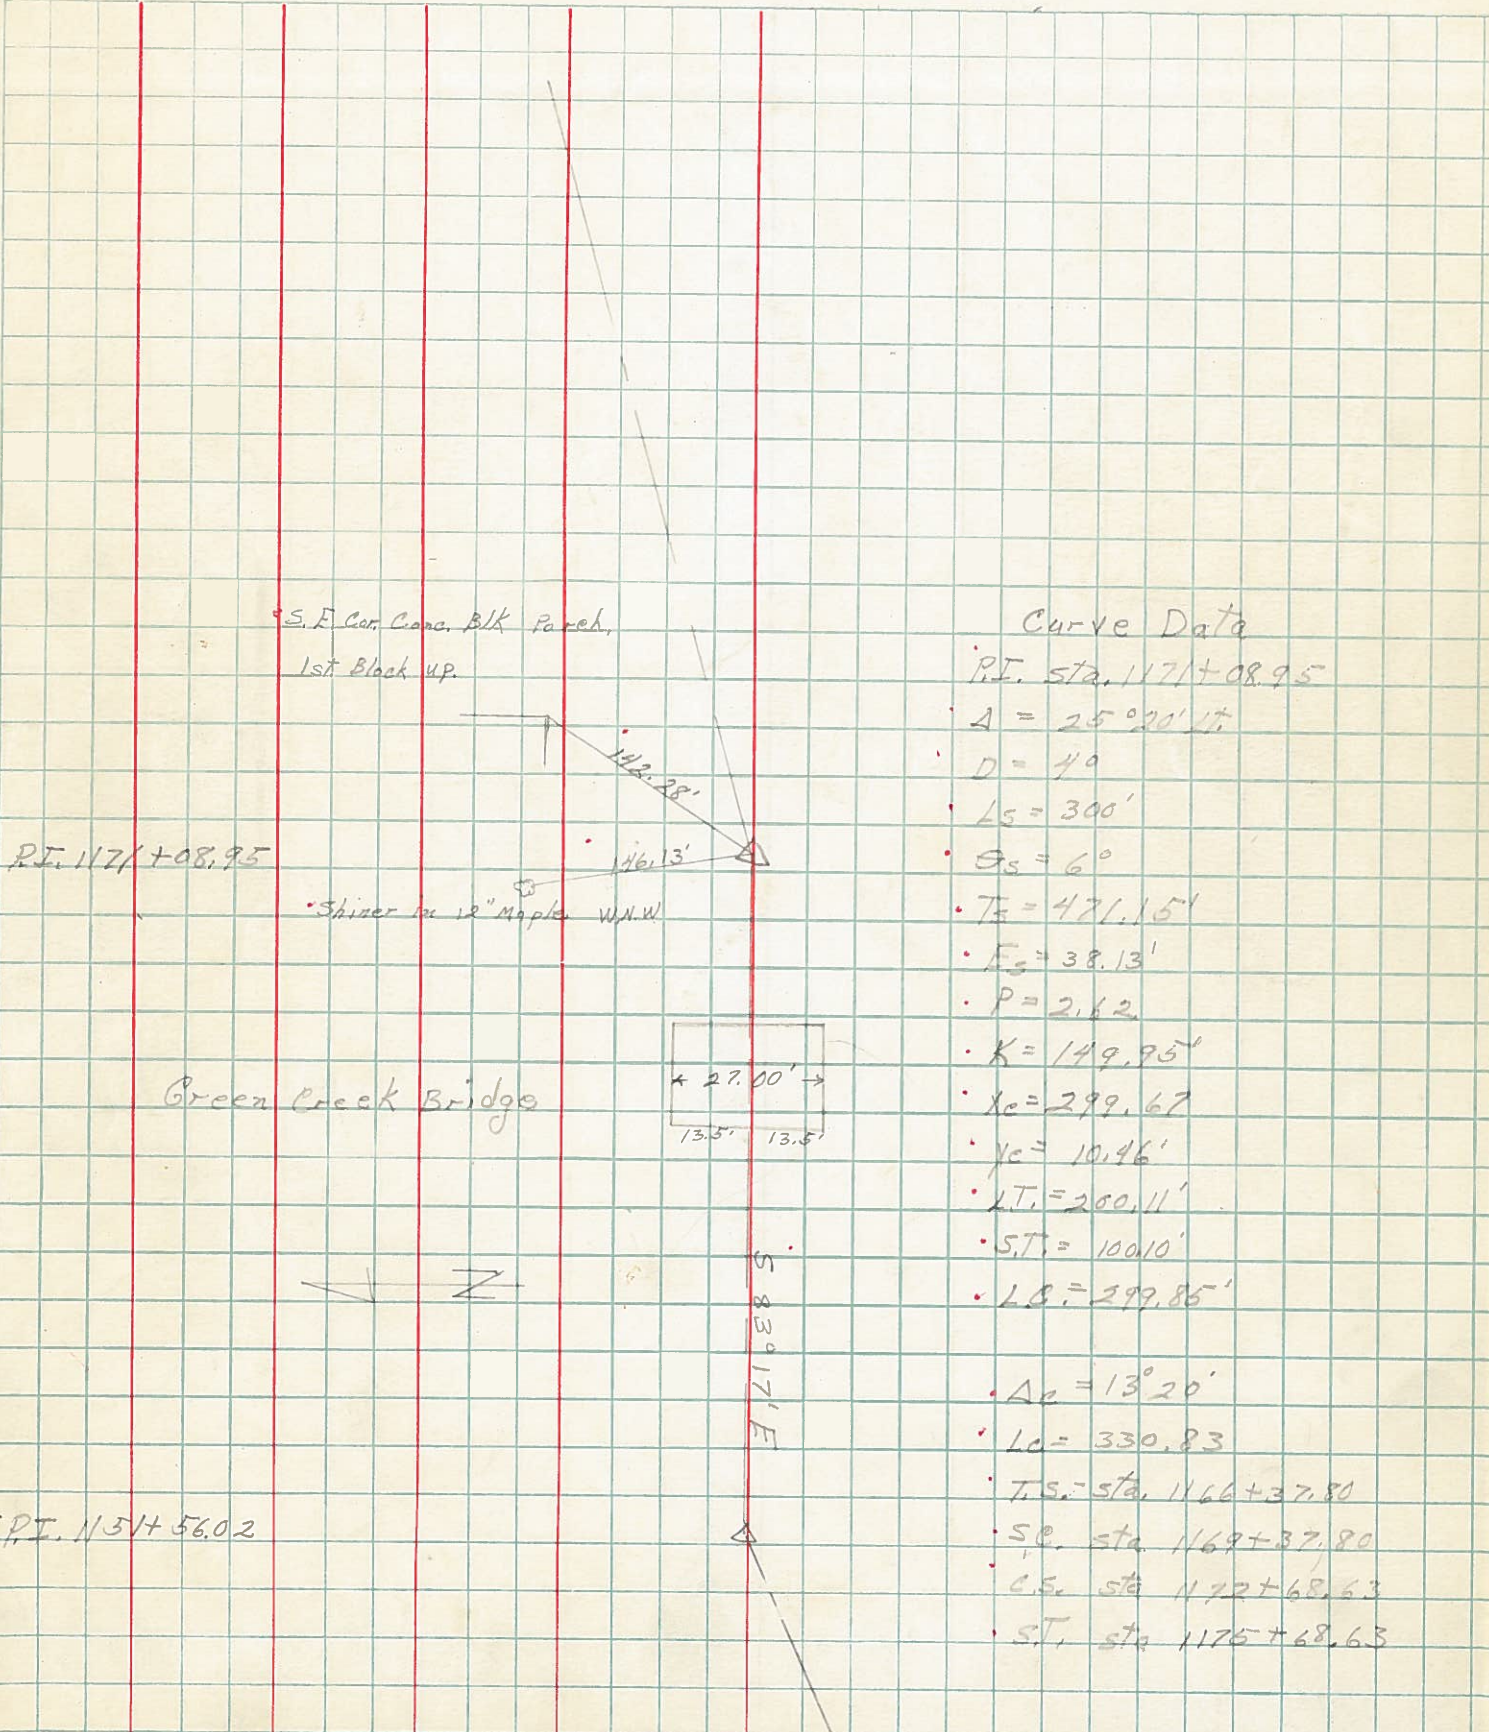 S.E. Cor. Conc. Blk Porch.
1st Block up.
142.28'
P.I. 1171+08.95
146.13'
Shiner in 12" Maple W.N.W.
27.00'
Green Creek Bridge
13.5' 13.5'
N
S 83°17' E
P.I. 1151+56.02
Curve Data
P.I. sta. 1171+08.95
Δ = 25°20' Lt.
D = 4°
Ls = 300'
Θs = 6°
Ts = 471.15'
Es = 38.13'
P = 2.62
K = 149.95'
Xc = 299.67
Yc = 10.46'
L.T. = 200.11'
S.T. = 100.10'
L.C. = 299.85'
Δc = 13°20'
Lc = 330.83
T.S. = sta. 1166+37.80
S.C. sta 1169+37.80
C.S. sta 1172+68.63
S.T. sta 1175+68.63